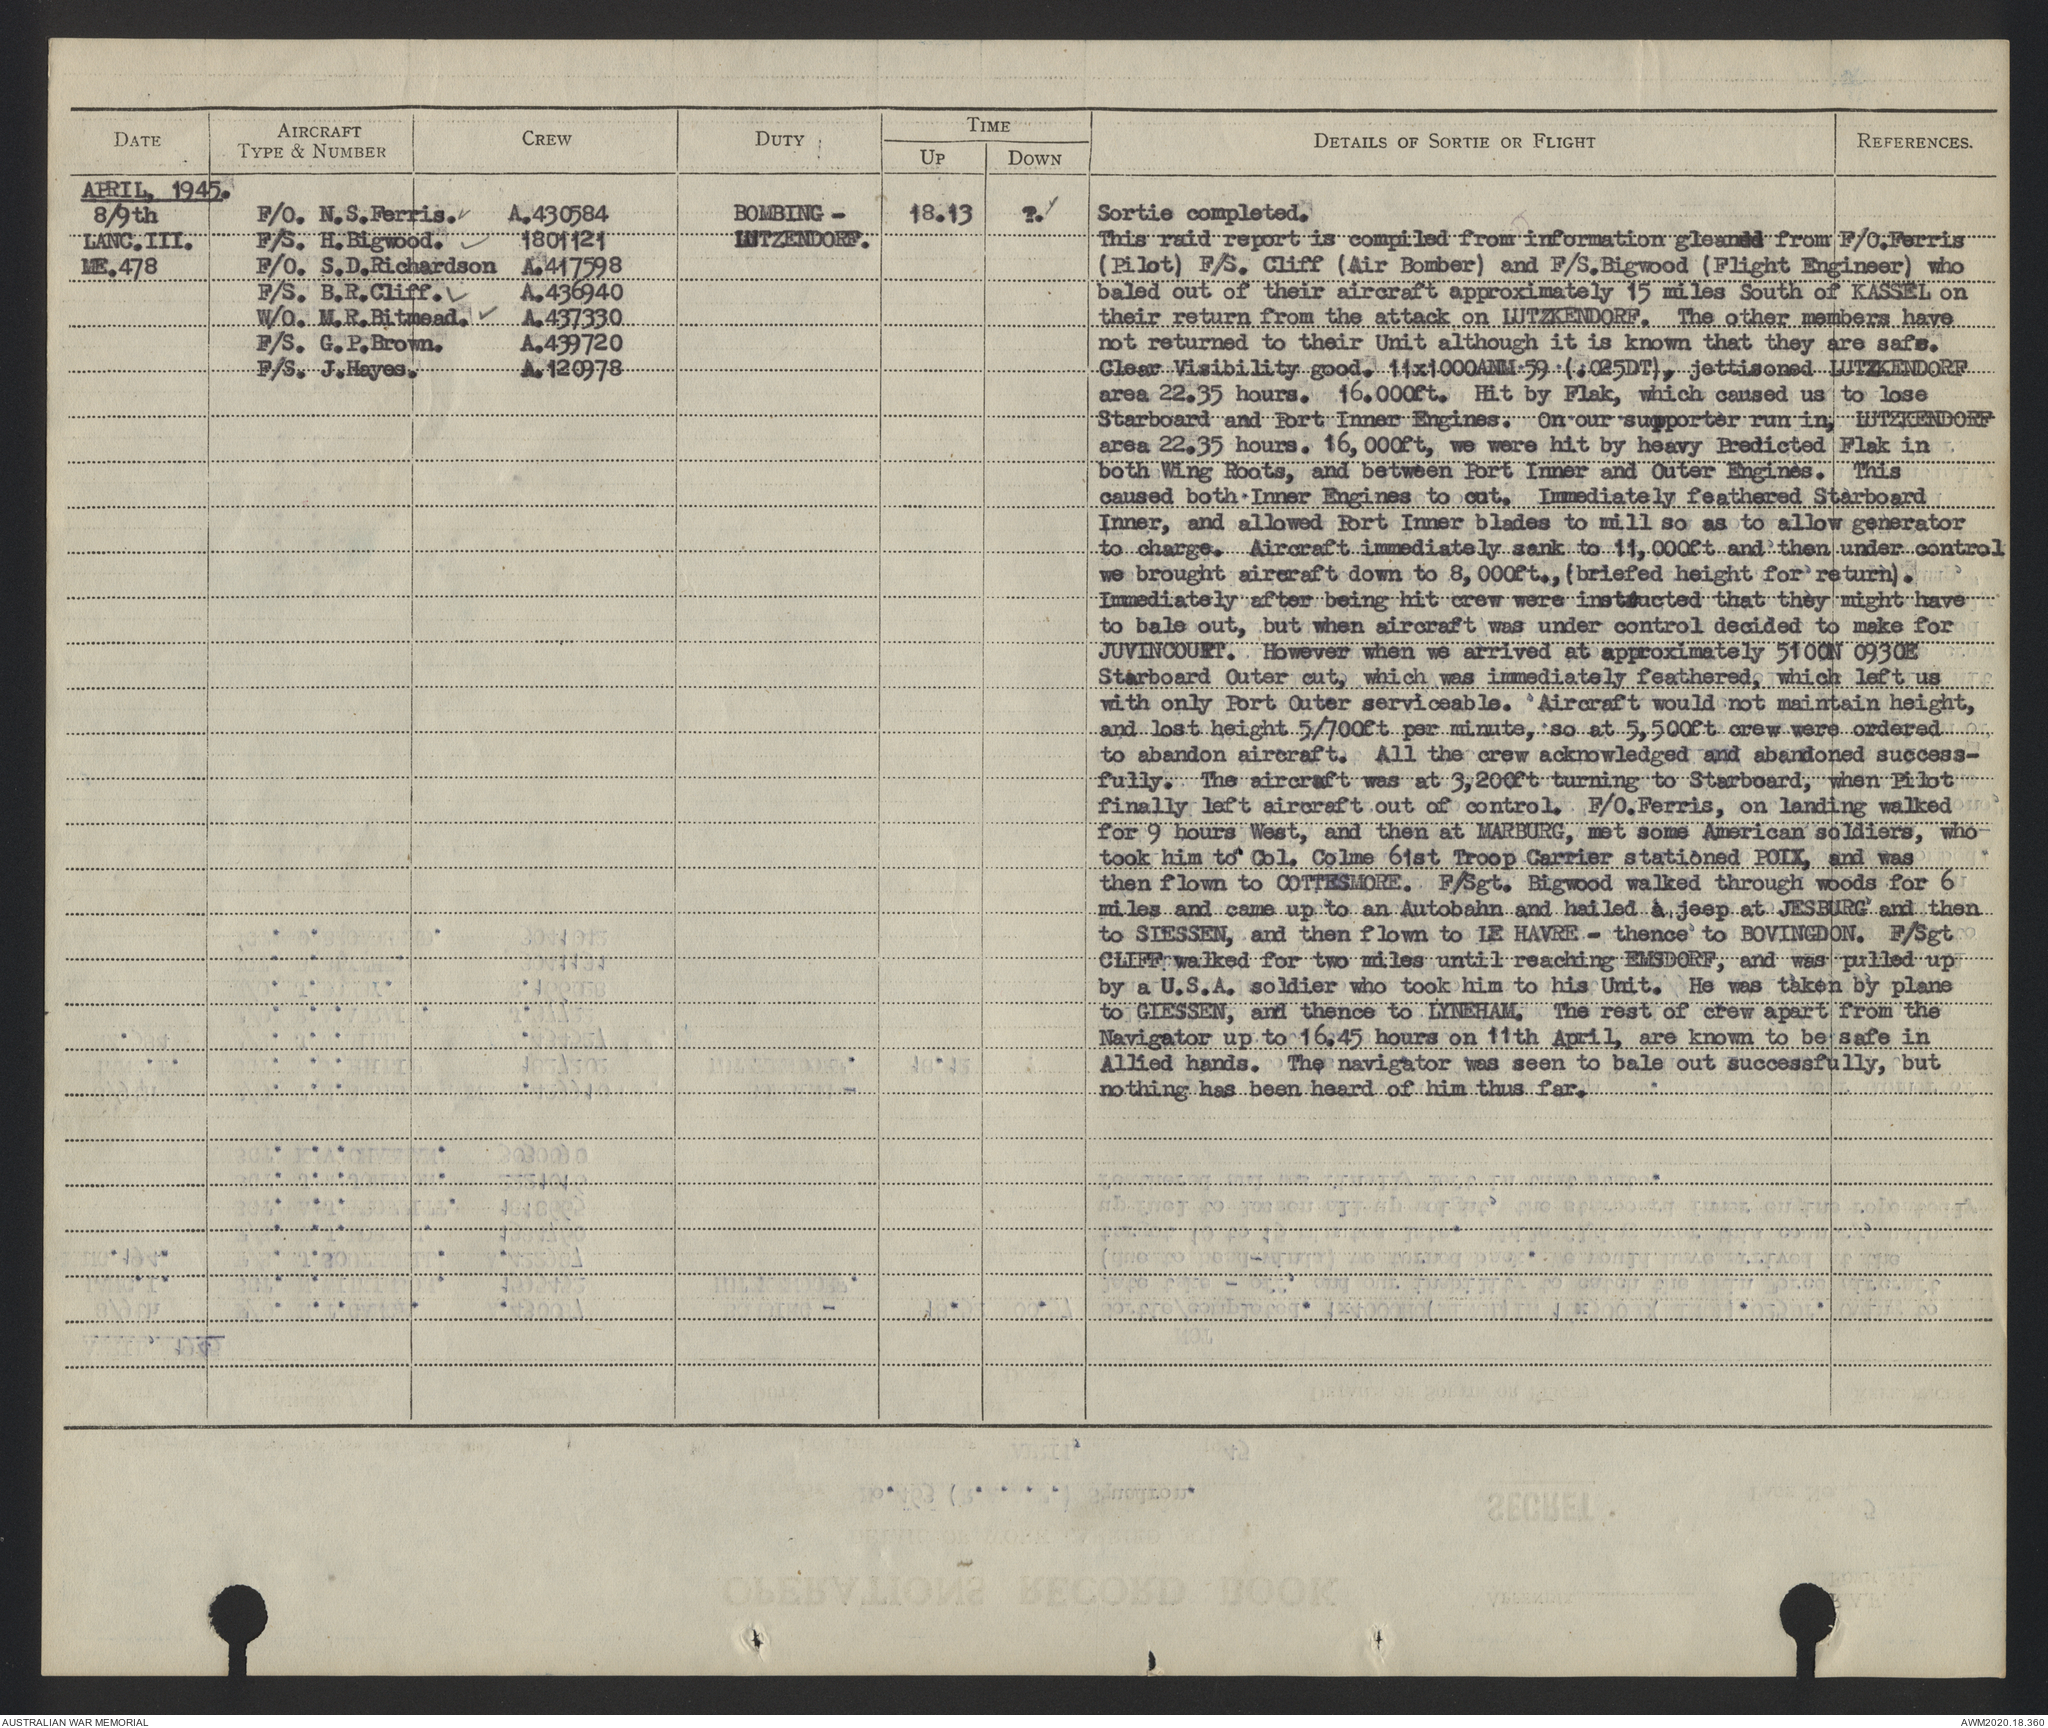 DATE AIRCRAFT TYPE & NUMBER CREW DUTY TIME UP DOWN DETAILS OF SORTIE OR FLIGHT REFERENCES.
APRIL, 1945.
8/9th F/O. N.S.Ferris. A.430584 BOMBING - 18.13 ?. Sortie completed.
LANC.III. F/S. H.Bigwood. 1801121 LUTZENDORF. This raid report is compiled from information gleaned from F/O.Ferris
ME.478 F/O. S.D.Richardson A.417598 (Pilot) F/S. Cliff (Air Bomber) and F/S.Bigwood (Flight Engineer) who
F/S. B.R.Cliff. A.436940 baled out of their aircraft approximately 15 miles South of KASSEL on
W/O. M.R.Bitmead. A.437330 their return from the attack on LUTZKENDORF. The other members have
F/S. G.P.Brown. A.439720 not returned to their Unit although it is known that they are safe.
F/S. J.Hayes. A.120978 Clear Visibility good. 11x1000ANM 59 (.025DT), jettisoned LUTZKENDORF
area 22.35 hours. 16.000ft. Hit by Flak, which caused us to lose
Starboard and Port Inner Engines. On our supporter run in, LUTZKENDORF
area 22.35 hours. 16,000ft, we were hit by heavy Predicted Flak in
both Wing Roots, and between Port Inner and Outer Engines. This
caused both Inner Engines to cut. Immediately feathered Starboard
Inner, and allowed Port Inner blades to mill so as to allow generator
to charge. Aircraft immediately sank to 11,000ft and then under control
we brought aircraft down to 8,000ft.,(briefed height for return).
Immediately after being hit crew were instructed that they might have
to bale out, but when aircraft was under control decided to make for
JUVINCOURT. However when we arrived at approximately 5100N 0930E
Starboard Outer cut, which was immediately feathered, which left us
with only Port Outer serviceable. Aircraft would not maintain height,
and lost height 5/700ft per minute, so at 5,500ft crew were ordered
to abandon aircraft. All the crew acknowledged and abandoned success-
fully. The aircraft was at 3,200ft turning to Starboard, when Pilot
finally left aircraft out of control. F/O.Ferris, on landing walked
for 9 hours West, and then at MARBURG, met some American soldiers, who
took him to Col. Colme 61st Troop Carrier stationed POIX, and was
then flown to COTTESMORE. F/Sgt. Bigwood walked through woods for 6
miles and came up to an Autobahn and hailed a jeep at JESBURG and then
to SIESSEN, and then flown to LE HAVRE - thence to BOVINGDON. F/Sgt
CLIFF walked for two miles until reaching EMSDORF, and was pulled up
by a U.S.A. soldier who took him to his Unit. He was taken by plane
to GIESSEN, and thence to LYNEHAM. The rest of crew apart from the
Navigator up to 16.45 hours on 11th April, are known to be safe in
Allied hands. The navigator was seen to bale out successfully, but
nothing has been heard of him thus far.
AUSTRALIAN WAR MEMORIAL AWM2020.18.360